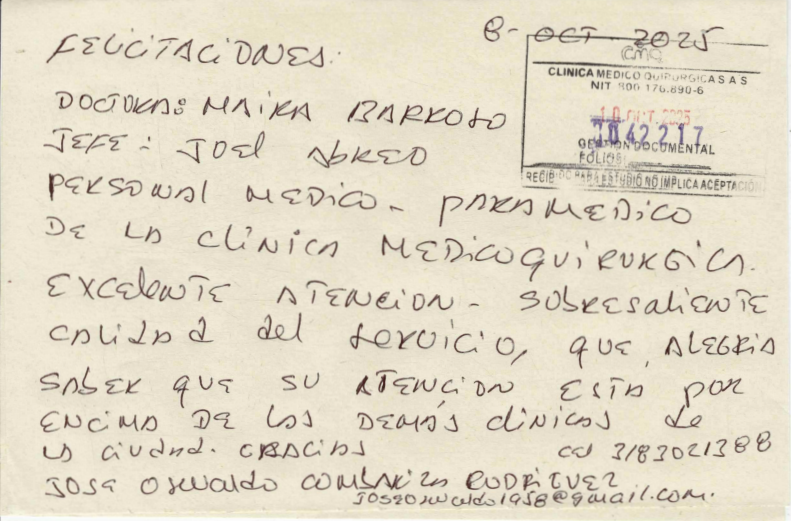 8- OCT- 2025
FELICITACIONES:
CMQ
CLINICA MEDICO QUIRURGICA S A S
NIT. 800 176.890-6
10 OCT. 2025
042217
GESTION DOCUMENTAL
FOLIOS:
RECIBIDO PARA ESTUDIO NO IMPLICA ACEPTACION
DOCTORA: MAIRA BARROSO
JEFE: JOEL ABREO
PERSONAL MEDICO - PARAMEDICO
DE LA CLINICA MEDICOQUIRURGICA.
EXCELENTE ATENCION - SOBRESALIENTE
CALIDAD del SERVICIO, QUE ALEGRIA
SABER QUE SU ATENCION ESTA POR
ENCIMA DE LAS DEMÁS CLINICAS de
LA CIUDAD. GRACIAS cel 3183021388
JOSE OSWALDO RODRIGUEZ
@gmail.com.